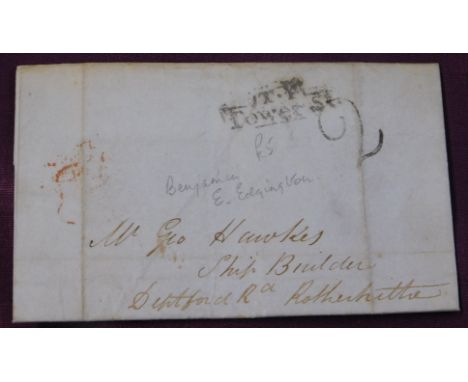 T.P
Tower St
2
Benjamin
E. Edgington
Mr Geo Hawkes
Ship Builder
Deptford Rd Rotherhithe